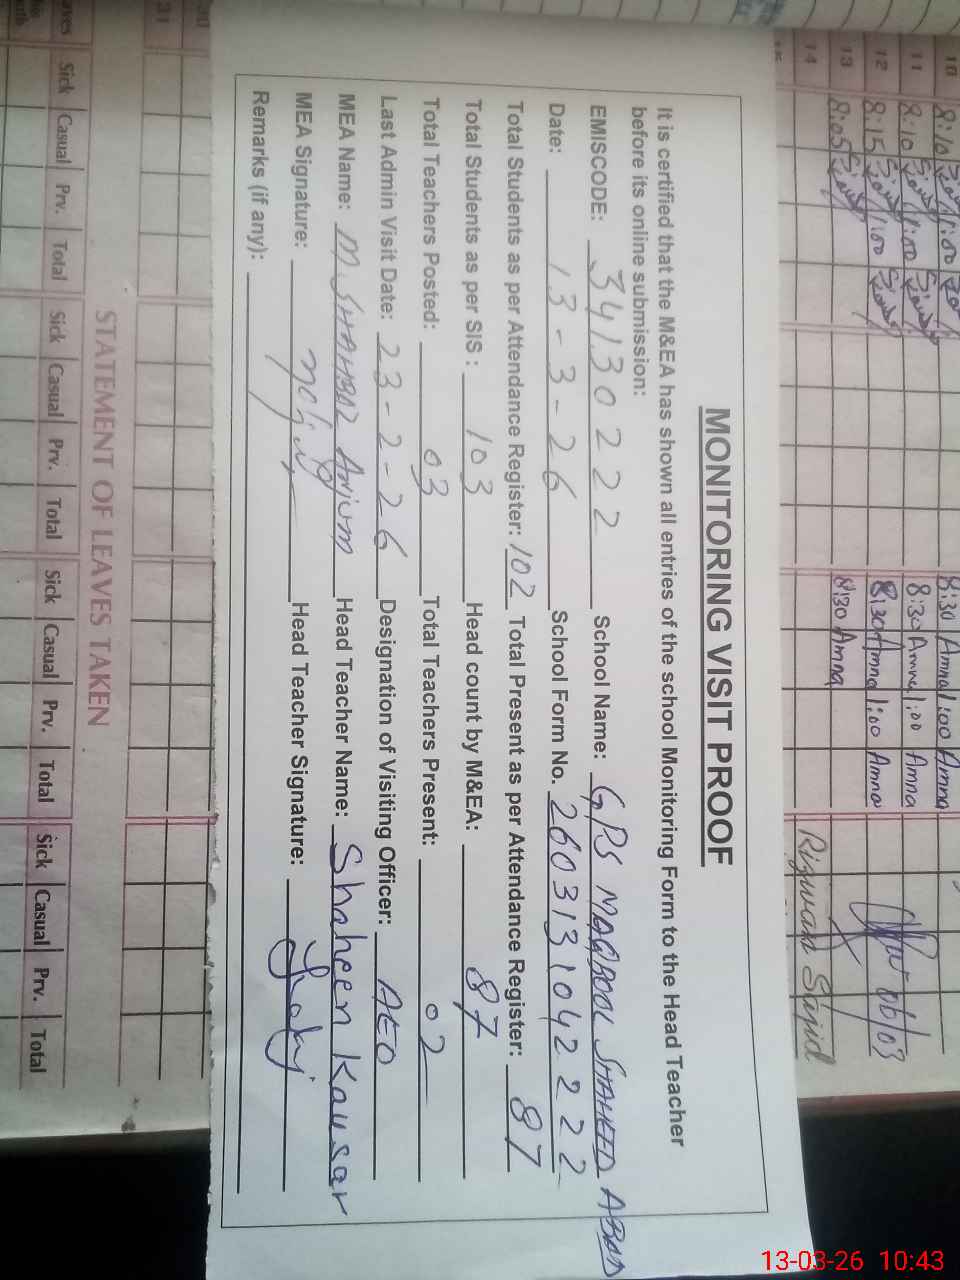 MONITORING VISIT PROOF
It is certified that the M&EA has shown all entries of the school Monitoring Form to the Head Teacher
before its online submission:
EMISCODE: 34130222 School Name: GPS MAQBOOL SHAHEED ABAD
Date: 13-3-26 School Form No. 260313104222 2
Total Students as per Attendance Register: 102 Total Present as per Attendance Register: 87
Total Students as per SIS: 103 Head count by M&EA: 87
Total Teachers Posted: 03 Total Teachers Present: 02
Last Admin Visit Date: 23-2-26 Designation of Visiting Officer: AEO
MEA Name: M. SHAHBAZ Anjum Head Teacher Name: Shaheen Kausar
MEA Signature: Head Teacher Signature:
Remarks (if any):
10 8:10 1:00 8:30 Amna 1:00 Amna
11 8:10 1:00 8:30 Amna 1:00 Amna
12 8:15 1:00 8:30 Amna 1:00 Amna 06/03
13 8:05 8:30 Amna
14 Rizwan Sajid
30
31
STATEMENT OF LEAVES TAKEN
Sick Casual Prv. Total Sick Casual Prv. Total Sick Casual Prv. Total Sick Casual Prv. Total
13-03-26 10:43